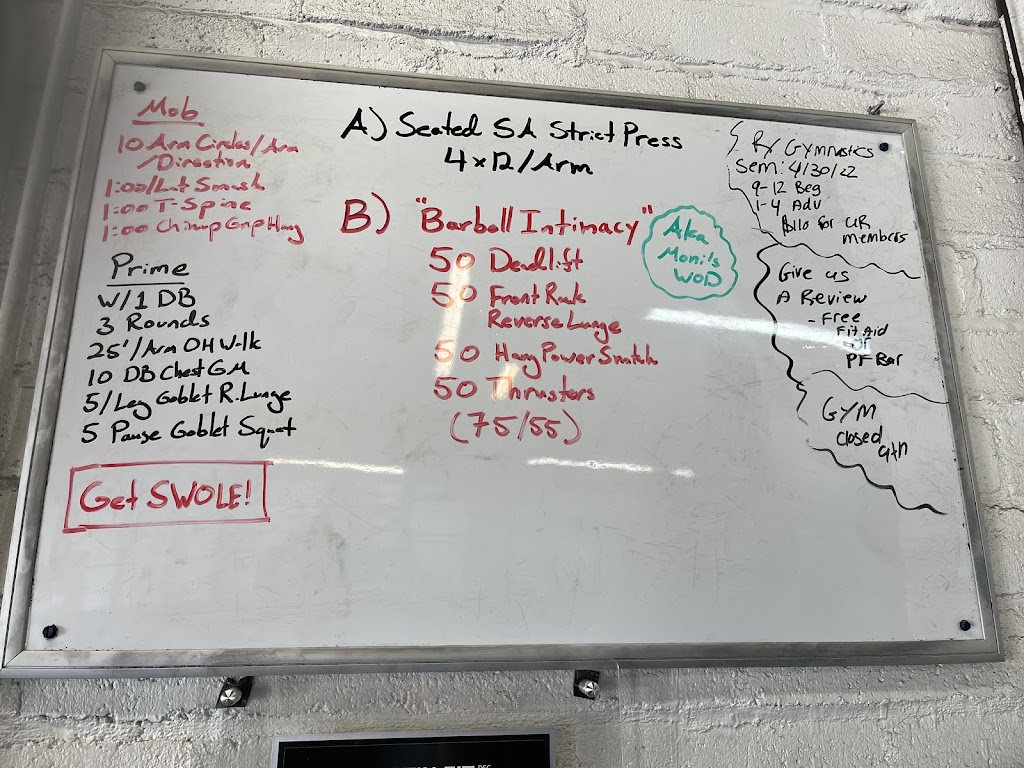 Mob
10 Arm Circles/Arm
/Direction
1:00/Lat Smash
1:00 T-Spine
1:00 Chinup Grip Hang
Prime
W/1 DB
3 Rounds
25'/Arm OH Walk
10 DB Chest GM
5/Leg Goblet R. Lunge
5 Pause Goblet Squat
Get SWOLE!
A) Seated SA Strict Press
4x12/Arm
B) "Barbell Intimacy"
50 Deadlift
50 Front Rack
Reverse Lunge
50 Hang Power Snatch
50 Thrusters
(75/55)
Aka
Moni's
WOD
Rx Gymnastics
Sem: 4/30/22
9-12 Beg
1-4 Adv
$110 for UR
members
Give us
A Review
- Free
Fit Aid
or
PF Bar
GYM
closed